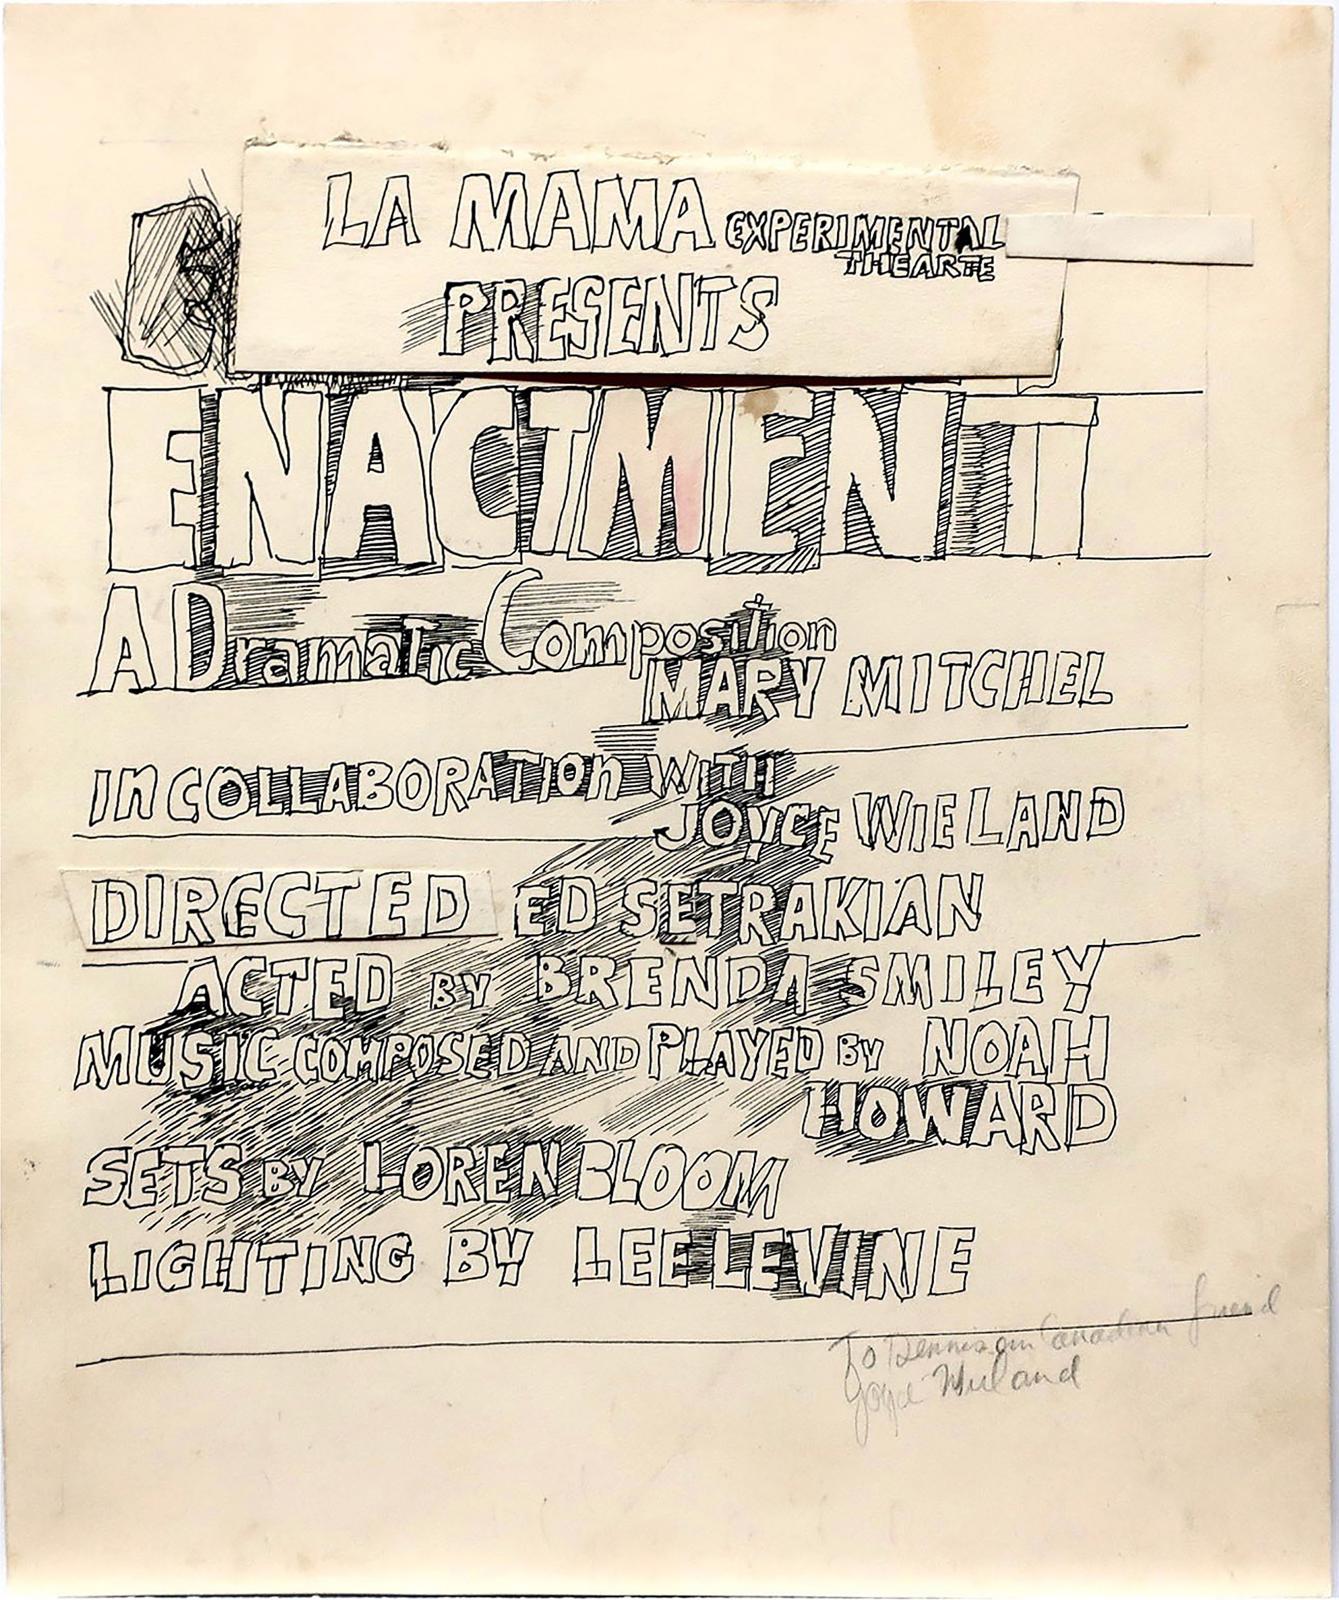 LA MAMA EXPERIMENTAL
THEARTE
PRESENTS
ENACTMENT
A DramaTic Composition
MARY MITCHEL
In COLLABORATIOn WITH
JOYCE WIELAND
DIRECTED ED SETRAKIAN
ACTED BY BRENDA SMILEY
MUSIC COMPOSED AND PLAYED BY NOAH
HOWARD
SETS BY LOREN BLOOM
LIGHTING BY LEE LEVINE
To Dennis our Canadian friend
Joyce Wieland